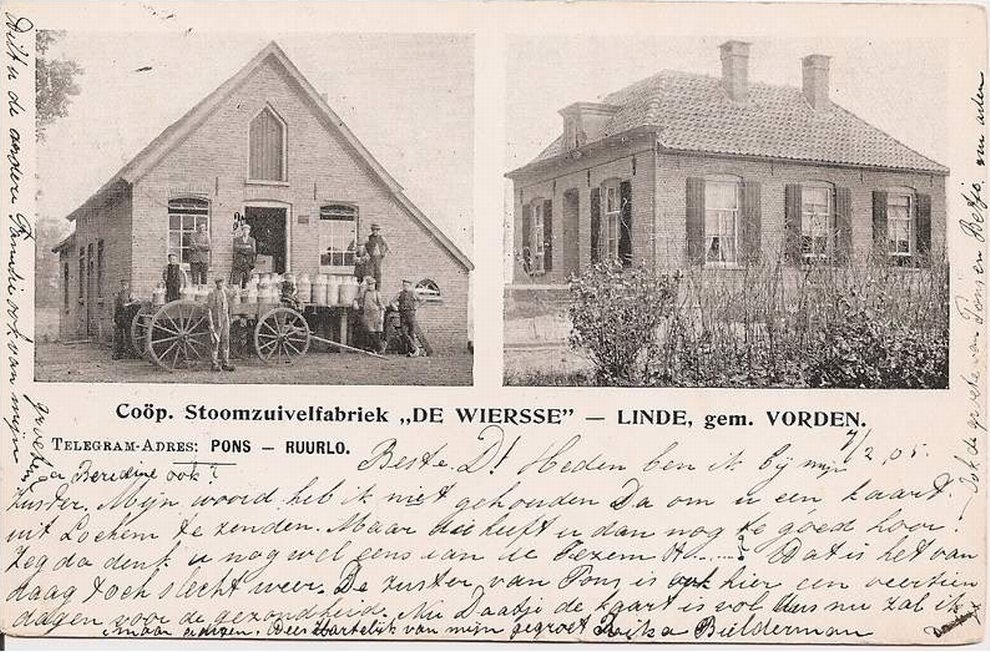 Coöp. Stoomzuivelfabriek „DE WIERSSE” — LINDE, gem. VORDEN.
TELEGRAM-ADRES: PONS — RUURLO.
7/2, 05.
Beste D! Heden ben ik bij mijn
zuster. Mijn woord heb ik niet gehouden Da om u een kaart
uit Lochem te zenden. Maar die heeft u dan nog te goed hoor!
Zeg da denk u nog wel eens aan de bezem H......? Wat is het van
daag toch slecht weer. De zuster van Pons is ook hier een veertien
dagen voor de gezondheid. Nu Daatje de kaart is vol dus nu zal ik
maar Wees Hartelijk van mijn gegroet Rika Bielderman
Wilt u de andere Familie ook van mijn
groeten
Beredine ook?
Ook de groeten van Pons en Betjo,